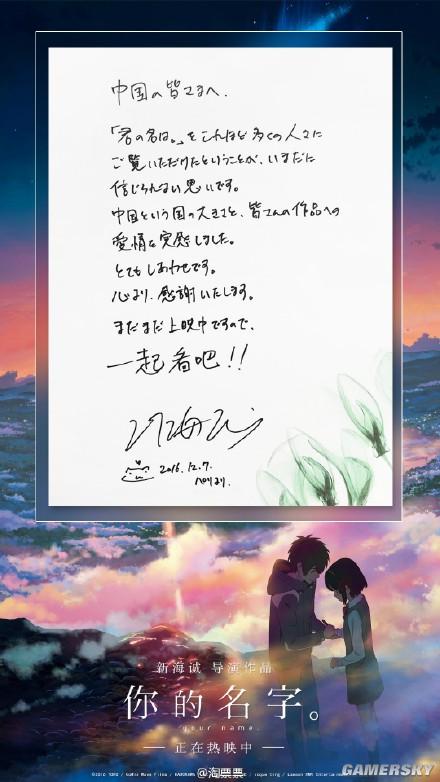 中国の皆さまへ.
「君の名は。」をこれほど多くの人々に
ご覧いただけたということが、いまだに
信じられない思いです。
中国という国の大きさと、皆さんの作品への
愛情を実感しました。
とてもしあわせです。
心より、感謝いたします。
まだまだ上映中ですので、
一起看吧!!
2016.12.7.
新海诚 导演作品
你的名字。
your name.
正在热映中
@淘票票
GAMERSKY